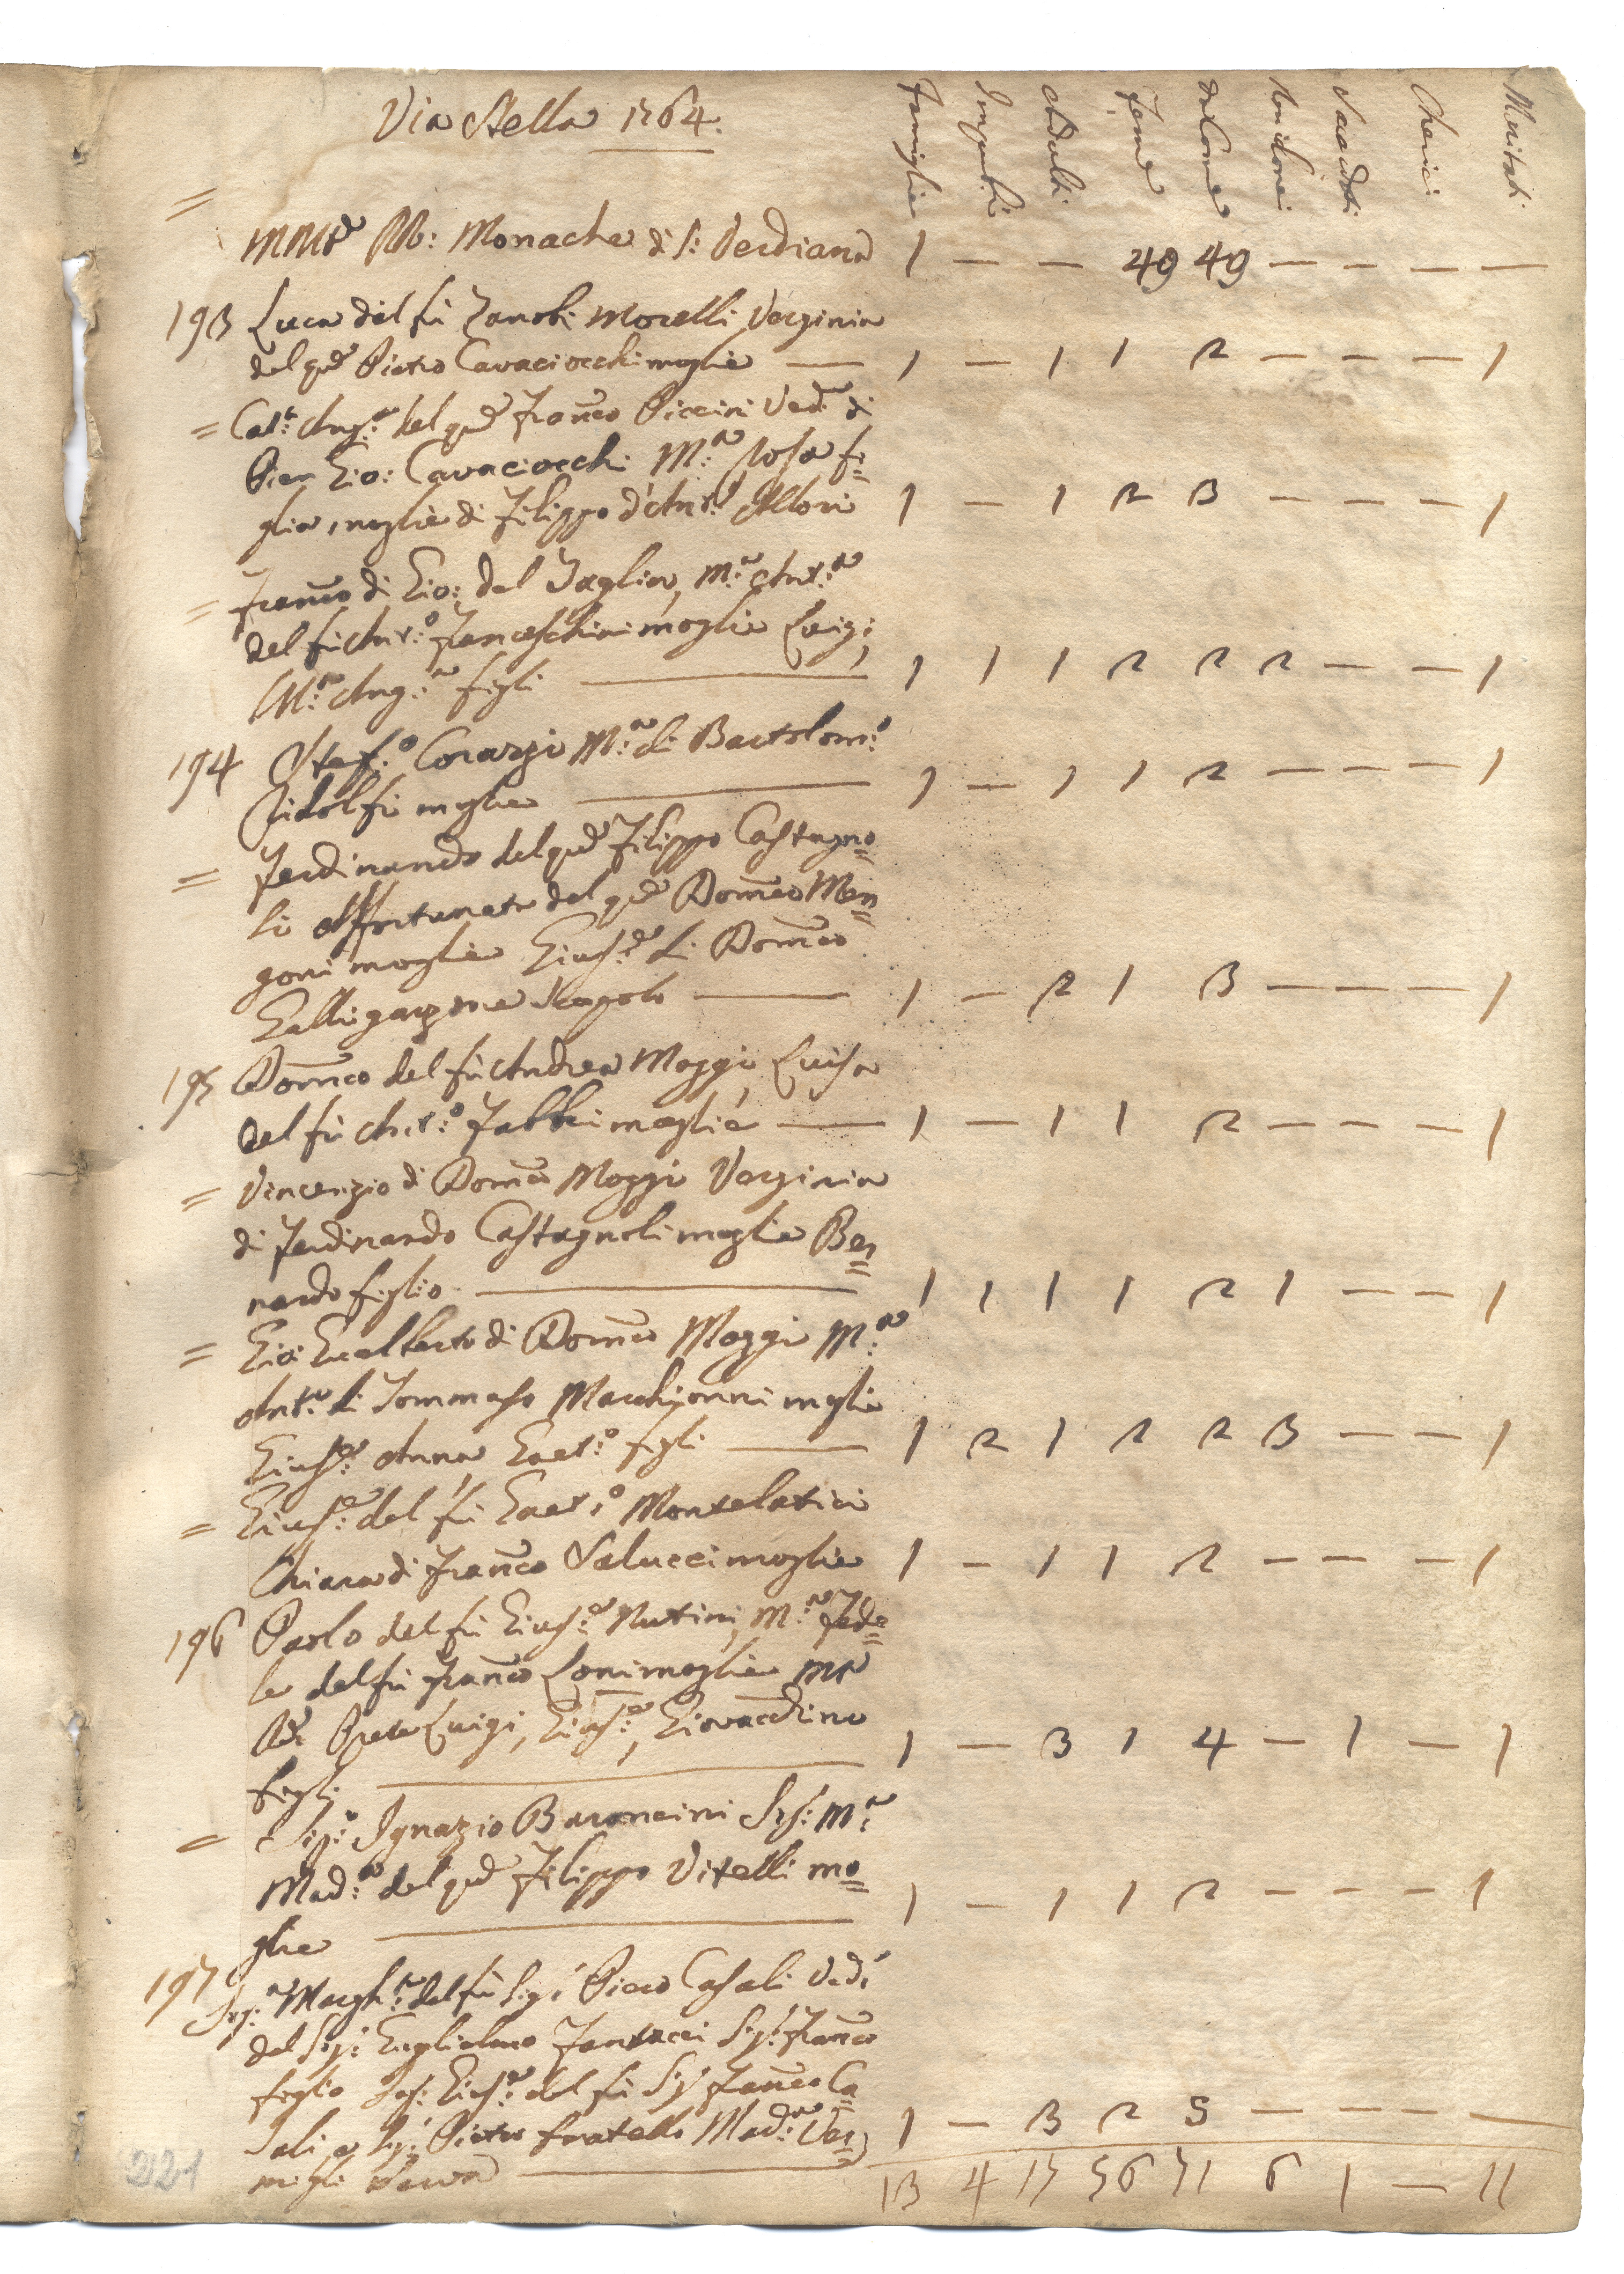 Via Stella 1764.
Famiglie Impuberi Adulti Feme dalcomo Sacerdoti Cherici Maritati
= MMto RR: Monache di S: Verdiana 1 — — 49 49 — — — —
193 Luca del fu Zanobi Morelli Verginia
del qm Pietro Cavaciocchi moglie — 1 — 1 1 2 — — — 1
= Cat:a Ang:a del qm Franco Piccini Ved:a di
Pier Gio: Cavaciocchi M:a Rosa fi=
glia, moglie di Filippo d'Ant:o Allori 1 — 1 2 3 — — — 1
= Franco di Gio: del Taglia, M:a Ant:a
del fu Ant:o Franceschini moglie Luigi,
M:a Ang:a figli — 1 1 1 2 2 2 — — 1
194 Stef:o Corazzi M:a di Bartolom:o
Ridolfi moglie — 1 — 1 1 2 — — — 1
= Ferdinando del qm Filippo Castagno=
li Affortunata del qm Domco Men=
goni moglie Gius:e di Domco
Galli garzone scapolo — 1 — 2 1 3 — — — 1
195 Domco del fu Andrea Mazzi, Luisa
del fu Ant:o Fabbri moglie — 1 — 1 1 2 — — — 1
= Vincenzio di Domco Mazzi Verginia
di Ferdinando Castagnoli moglie Ber=
nardo figlio — 1 1 1 1 2 1 — — 1
= Gio: Gualberto di Domco Mazzi M:a
Ant:a di Tommaso Macchioni moglie
Gius:e Anna Gaet:o figli — 1 2 1 2 2 3 — — 1
= Gius:e del fu Gaet:o Montelatici
Chiara di Franco Salucci moglie 1 — 1 1 2 — — — 1
196 Paolo del fu Gius:e Nutini, M:a Fede=
le del fu Franco Loni moglie
Prete Luigi, Gius:e, Giovacchino
figli — 1 — 3 1 4 — 1 — 1
= Sig:r Ignazio Baroncini Sig: M:a
Mad:a del qm Filippo Vitelli mo=
glie — 1 — 1 1 2 — — — 1
197 Sig:a Margh:a del fu Sig: Piero Casali Ved:
del Sig: Guglielmo Fantacci Sig: Franco
figlio Sig: Gius:e del fu Sig: Franco Ca=
sali e Sig: Pietro fratelli Mad:a Ver=
migli serva — 1 — 3 2 5 — — — —
13 4 15 56 71 6 1 — 11
221